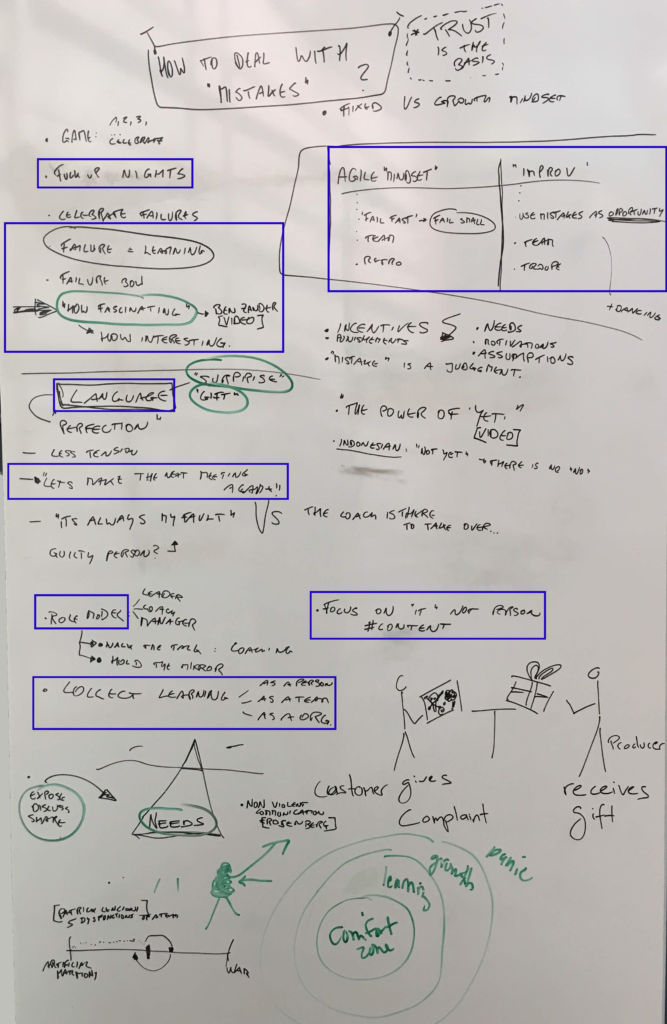 HOW TO DEAL WITH
"MISTAKES" ?
* TRUST
IS THE
BASIS
• FIXED VS GROWTH MINDSET
• GAME: 1, 2, 3,
CELEBRATE
• FUCK UP NIGHTS
• CELEBRATE FAILURES
FAILURE = LEARNING
• FAILURE BOW
"HOW FASCINATING" → BEN ZANDER
[VIDEO]
↳ HOW INTERESTING.
AGILE "MINDSET"
'FAIL FAST' → FAIL SMALL
• TEAM
• RETRO
"IMPROV'
• USE MISTAKES AS OPPORTUNITY
• TEAM
• TROUPE
+ DANCING
• INCENTIVES
• PUNISHEMENTS
• NEEDS
• MOTIVATIONS
• ASSUMPTIONS
• "MISTAKE" IS A JUDGEMENT.
"LANGUAGE"
"SURPRISE"
"GIFT"
PERFECTION"
• "THE POWER OF 'YET'."
[VIDEO]
• INDONESIAN: "NOT YET" → THERE IS NO "NO"
— LESS TENSION
→ "LETS MAKE THE NEXT MEETING
AGAIN!"
— "ITS ALWAYS MY FAULT" VS THE COACH IS THERE
TO TAKE OVER...
GUILTY PERSON?
• ROLE MODEL
LEADER
COACH
MANAGER
• WALK THE TALK : COACHING
• HOLD THE MIRROR
• FOCUS ON "IT" NOT PERSON
#CONTENT
• COLLECT LEARNING
AS A PERSON
AS A TEAM
AS A ORG.
Customer gives
Complaint
Producer
receives
Gift
EXPOSE
DISCUSS
SHARE
NEEDS
• NON VIOLENT
COMMUNICATION
[ROSENBERG]
[PATRICK LENCIONI]
5 DYSFUNCTIONS OF A TEAM
ARTIFICIAL
HARMONY
WAR
Comfort
zone
learning
growth
panic